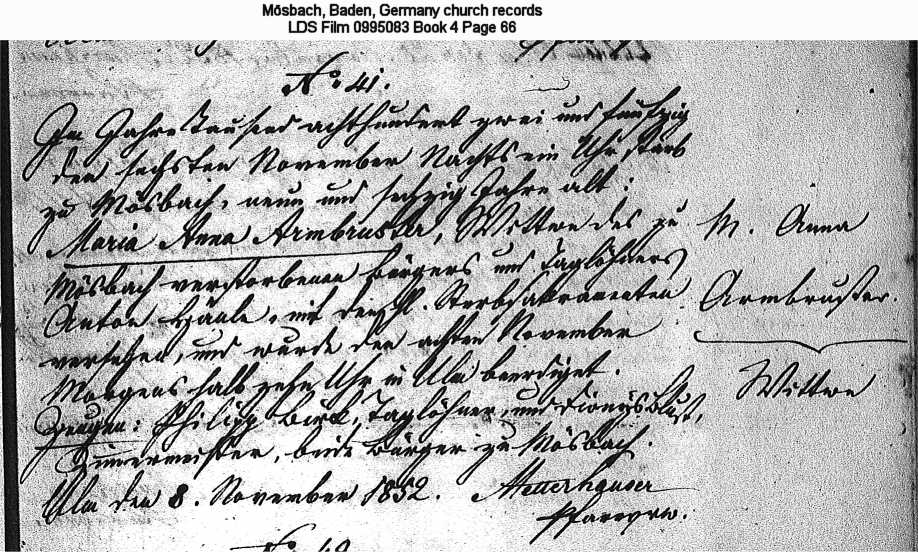 Mösbach, Baden, Germany church records
LDS Film 0995083 Book 4 Page 66
No. 41.
Im Jahre tausend achthundert zwei und fünfzig
den sechsten November Nachts ein Uhr starb
zu Mösbach, neun und sechzig Jahre alt:
Maria Anna Armbruster, Wittwe des zu
Mösbach verstorbenen Bürgers und Taglöhners
Anton, mit den hl. Sterbsakramenten
versehen, und wurde den achten November
Morgens halb zehn Uhr in Ulm beerdiget.
Zeugen: Philipp, Taglöhner, und Dionys
Zimmermeister, beide Bürger zu Mösbach.
Ulm den 8. November 1852.
Pfarrvrw.
M. Anna
Armbruster.
Wittwe